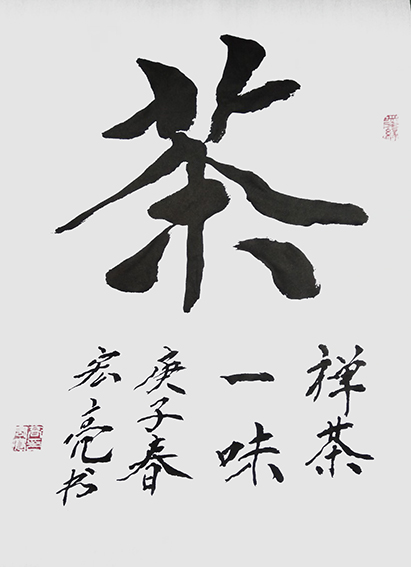 茶
禅茶
一味
庚子春
宏亮书